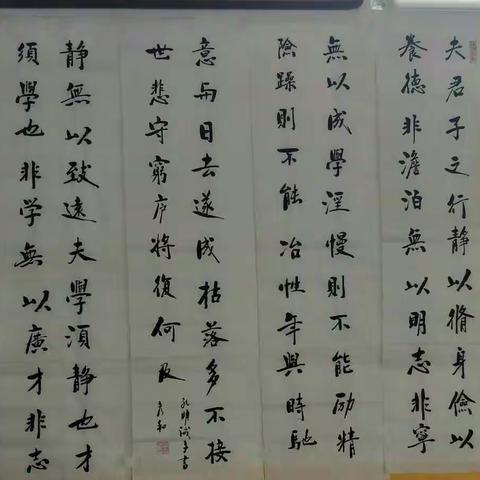 夫君子之行静以脩身儉以
養德非澹泊無以明志非寧
無以成學淫慢則不能励精
險躁則不能冶性年與時馳
意与日去遂成枯落多不接
世悲守窮庐將復何及
孔明诫子書
静無以致遠夫學須静也才
須學也非学無以廣才非志